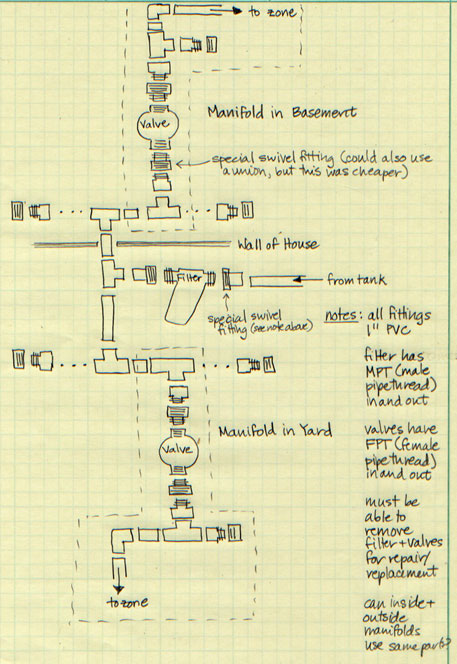 to zone
Manifold in Basement
valve
special swivel fitting (could also use
a union, but this was cheaper)
Wall of House
Filter
from tank
special swivel
fitting (see note above)
notes: all fittings
1" PVC
filter has
MPT (male
pipe thread)
in and out
Manifold in Yard
valve
valves have
FPT (female
pipe thread)
in and out
must be
able to
remove
filter + valves
for repair/
replacement
to zone
can inside +
outside
manifolds
use same parts?